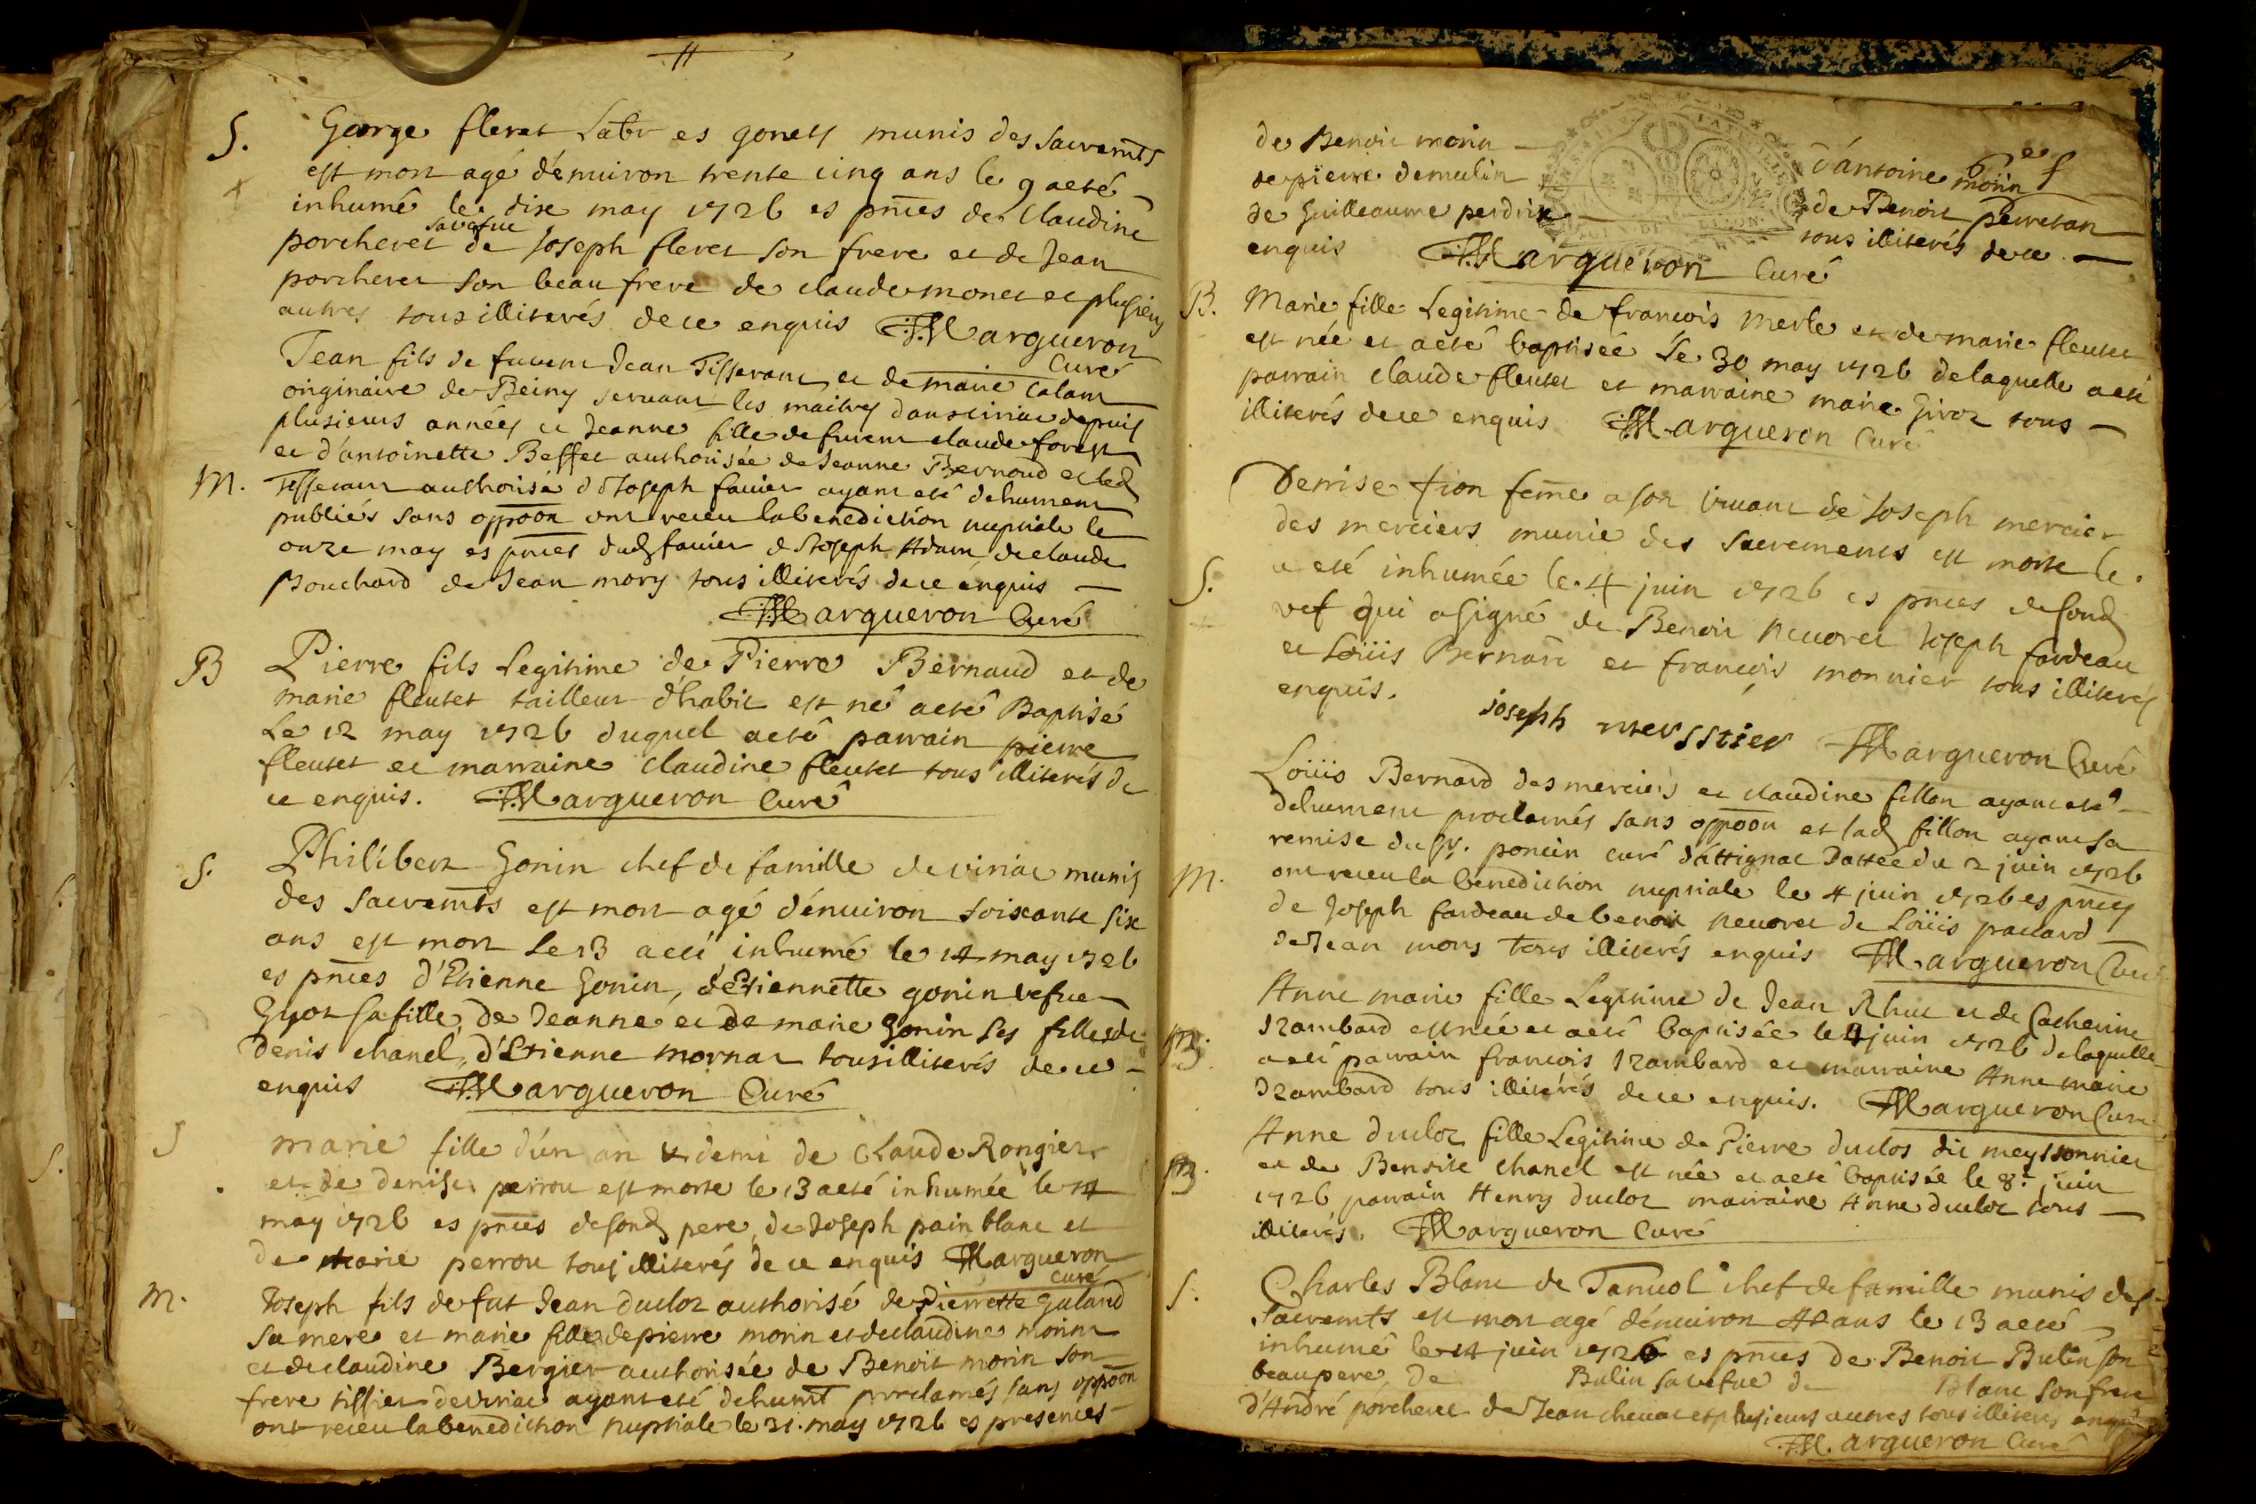 S. George fleret Labr es gonets munis des sacremts
est mort agé d'environ trente cinq ans le 9 a eté
inhumé le dix may 1726 es pnces de Claudine
savefue
porcheret de Joseph fleret son frere et de Jean
porcheret son beau frere de claude monet et plusieurs
autres tous illiterés de ce enquis Margueron
Curé
Jean fils de fuvent Jean Tisserant et de marie Calant
originaire de Beiny servant les maitres dans viriac depuis
plusieurs années et Jeanne fille de fuvent claude forest
et d'antoinette Beffet authorisée de Jeanne Bernoud et led
M. Tisserant authorisé d Joseph favier ayant eté dehument
publiés sans oppoon ont receu la benediction nuptiale le
onze may es pnces dud favier d Joseph Adam de claude
Bouchard de Jean mory tous illiterés de ce enquis
Margueron Curé
B Pierre fils Legitime de Pierre Bernaud et de
marie fleutet tailleur d'habit est né a eté Baptisé
Le 12 may 1726 duquel a eté parrain pierre
fleutet et marraine claudine fleutet tous illiterés de
ce enquis. Margueron Curé
S. Philibert Gonin chef de famille de viriac munis
des sacremts est mort agé d'environ soixante six
ans est mort Le 13 a eté inhumé le 14 may 1726
es pnces d'Etienne Gonin, d'Etiennette gonin vefue
Guot sa fille, de Jeanne et de marie Gonin ses filles de
Denis chanel, d'Etienne mornat tous illiterés de ce
enquis Margueron Curé
S marie fille d'un an & demi de Claude Rongier
et de denise perrou est morte le 13 a eté inhumée le 14
may 1726 es pnces de sond pere, de Joseph pain blanc et
de marie perrou tous illiterés de ce enquis Margueron
curé
M. Joseph fils de fut Jean ducloz authorisé de Pierrette Galand
sa mere et marie fille de pierre morin et de claudine morin
et de claudine Bergier authorisée de Benoit morin son
frere tissier de viriac ayant eté dehumt proclamés sans oppoon
ont receu la benediction nuptiale le 21. may 1726 es presences
de Benoit morin d'antoine morin
de pierre demulin de Benoit perretan
de Guilleaume perdrix tous illiterés de ce
enquis Margueron Curé
B. Marie fille Legitime de francois merle et de marie fleutet
est née et a eté baptisée le 30 may 1726 de laquelle a eté
parrain claude fleutet et marraine marie Givoz tous
illiterés de ce enquis Margueron Curé
Denise fion feme a son vivant de Joseph mercier
des merciers munie des sacrements est morte le
S. a eté inhumée le 4 juin 1726 es pnces de sond
vef qui a signé de Benoit neuoret Joseph fardeau
et Loüis Bernard et francois monnier tous illiterés
enquis.
joseph mersstier Margueron Curé
Loüis Bernard des merciers et claudine fillon ayant eté
dehument proclamés sans oppoon et lad fillon ayant sa
remise du Sr. poncin curé d'attignat dattée du 2 juin 1726
M. ont receu la benediction nuptiale le 4 juin 1726 es pnces
de Joseph fardeau de benoit neuoret de Loüis pauard
de Jean mory tous illiterés enquis Margueron Curé
Anne marie fille Legitime de Jean Rhut et de Catherine
B. Jzambard est née et a eté baptisée le 4 juin 1726 de laquelle
a eté parrain francois Jzambard et marraine Anne marie
Jzambard tous illiterés de ce enquis. Margueron Curé
Anne ducloz fille Legitime de Pierre duclos dit meyssonnier
B. et de Benoite chanel est née et a eté baptisée le 8e juin
1726 parrain Henry ducloz marraine Anne ducloz tous
illiterés. Margueron Curé
S. Charles Blanc de Tanuol chef de famille munis des
Sacremts est mort agé d'environ 40 ans le 13 a eté
inhumé le 14 juin 1726 es pnces de Benoit Bulin son
beaupere, de Bulin sa vefue de Blanc son frere
d'André porcheret de Jean chevat et plusieurs autres tous illiterés enquis
Margueron Curé